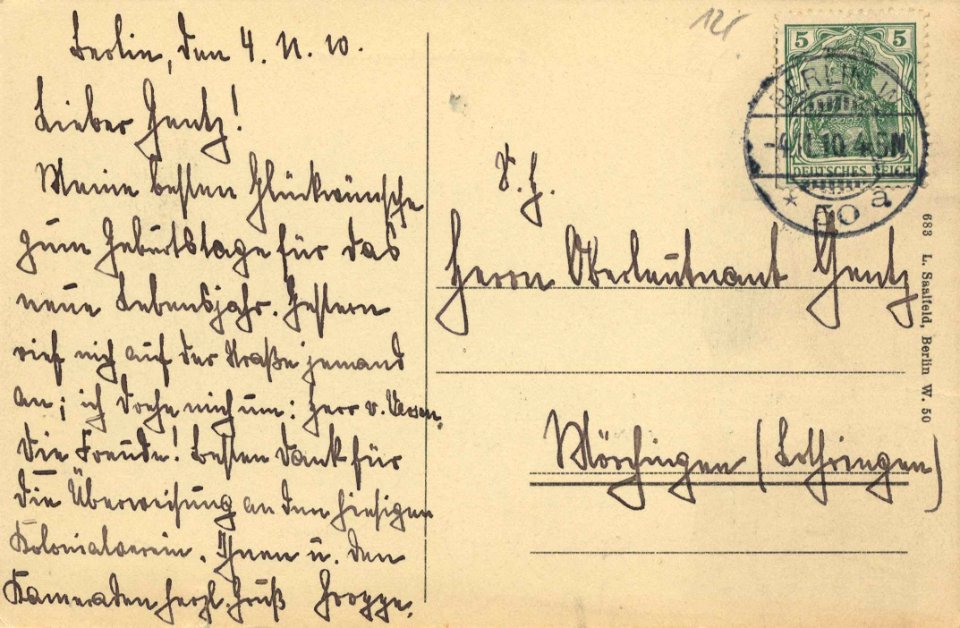 Berlin, den 4. 11. 10.
Lieber Gentz!
Meine besten Glückwünsche
zum Geburtstage für das
neue Lebensjahr. Gestern
rief mich auf der Straße jemand
an; ich drehe mich um: Herr v.
Die Freude! Besten Dank für
die Überweisung an den hiesigen
Kolonialverein. Ihnen u. den
Kameraden herzl. Gruß
12
5 5
DEUTSCHES REICH
BERLIN W
-4.11.10.4-5N
* 50 a
Herrn Oberleutnant Gentz
Mörchingen (Lothringen)
683 L. Saalfeld, Berlin W. 50